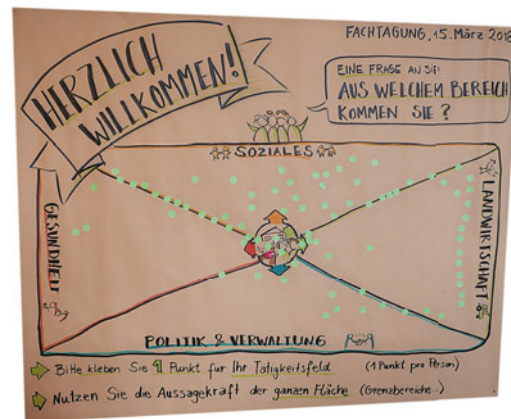 FACHTAGUNG, 15. März 2018
HERZLICH
WILLKOMMEN!
EINE FRAGE AN SIE:
AUS WELCHEM BEREICH
KOMMEN SIE?
SOZIALES
GESUNDHEIT
LANDWIRTSCHAFT
POLITIK & VERWALTUNG
Bitte kleben Sie 1 Punkt für Ihr Tätigkeitsfeld (1 Punkt pro Person)
Nutzen Sie die Aussagekraft der ganzen Fläche (Grenzbereiche...)